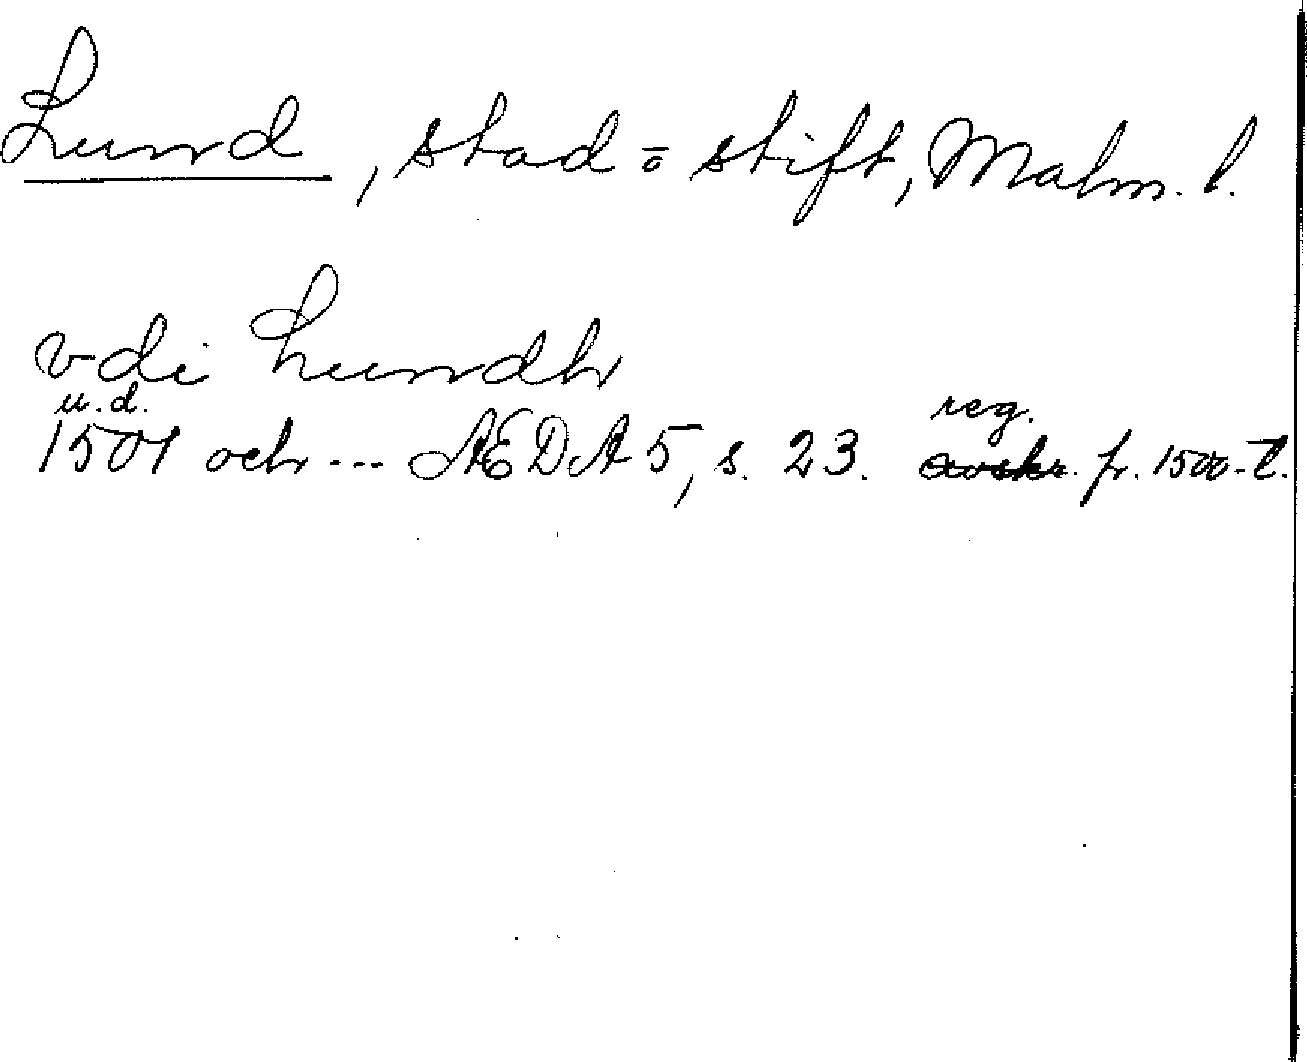 Lund, stad o stift, Malm. l.
vdi Lundh
u.d. reg.
1501 och --- ÆDA 5, s. 23. avskr. fr. 1500-t.